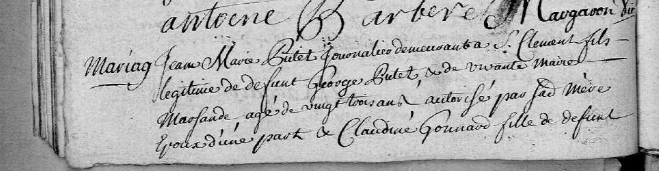 antoine Barberet Margaron
Mariag Jean Marie Putet Journalier demeurant a St Clement fils
legitime de defunt George Putet, & de vivante marie
Marsande, agé de vingt trois ans, autorisé par sad mère
Epoux d'úne part & Claudine Gonnard fille de defunt